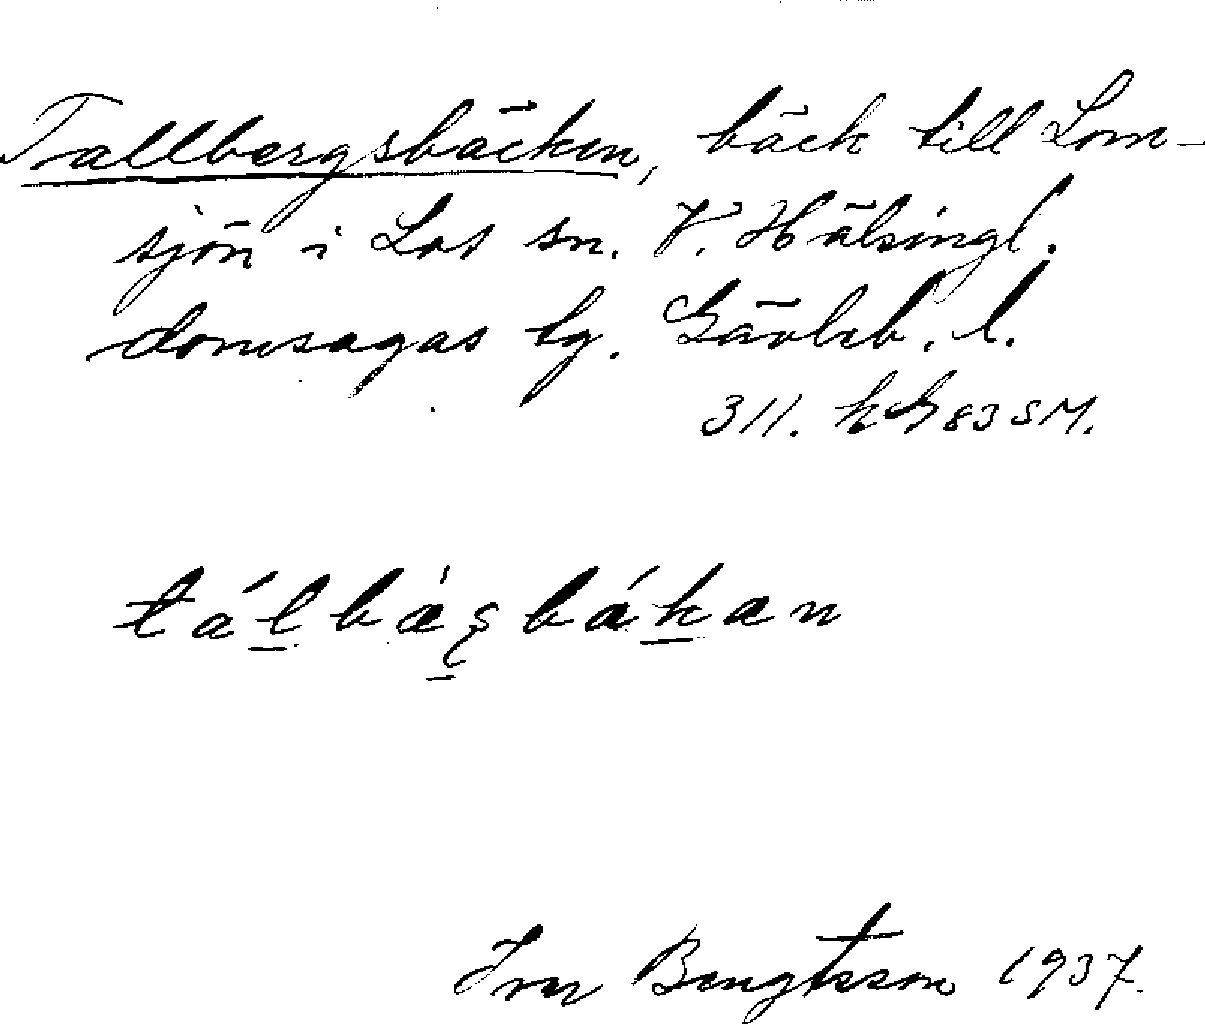 Tallbergsbäcken, bäck till Lom-
sjön i Los sn. V. Hälsingl.
domsagas tg. Gävleb. l.
311. HG 83 SM.
tálbæ̀ʂbákan
Ivar Bengtsson 1937.